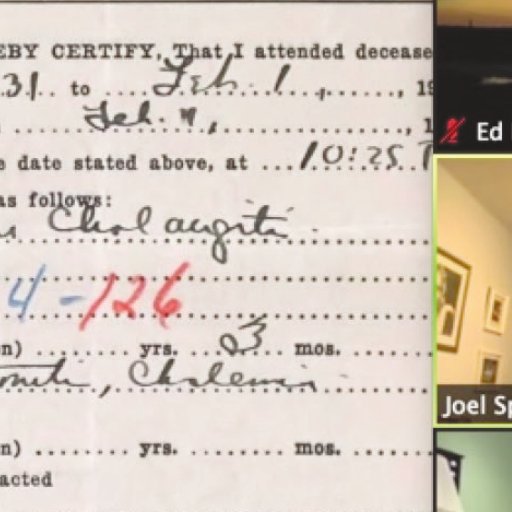 EBY CERTIFY, That I attended decease
31 to Feb. 1, 19
Feb. 1, 1
e date stated above, at 10:25
as follows:
Cholangitis
4-126
n) yrs. 3 mos.
, Cholemia
n) yrs. mos.
acted
Ed
Joel Sp